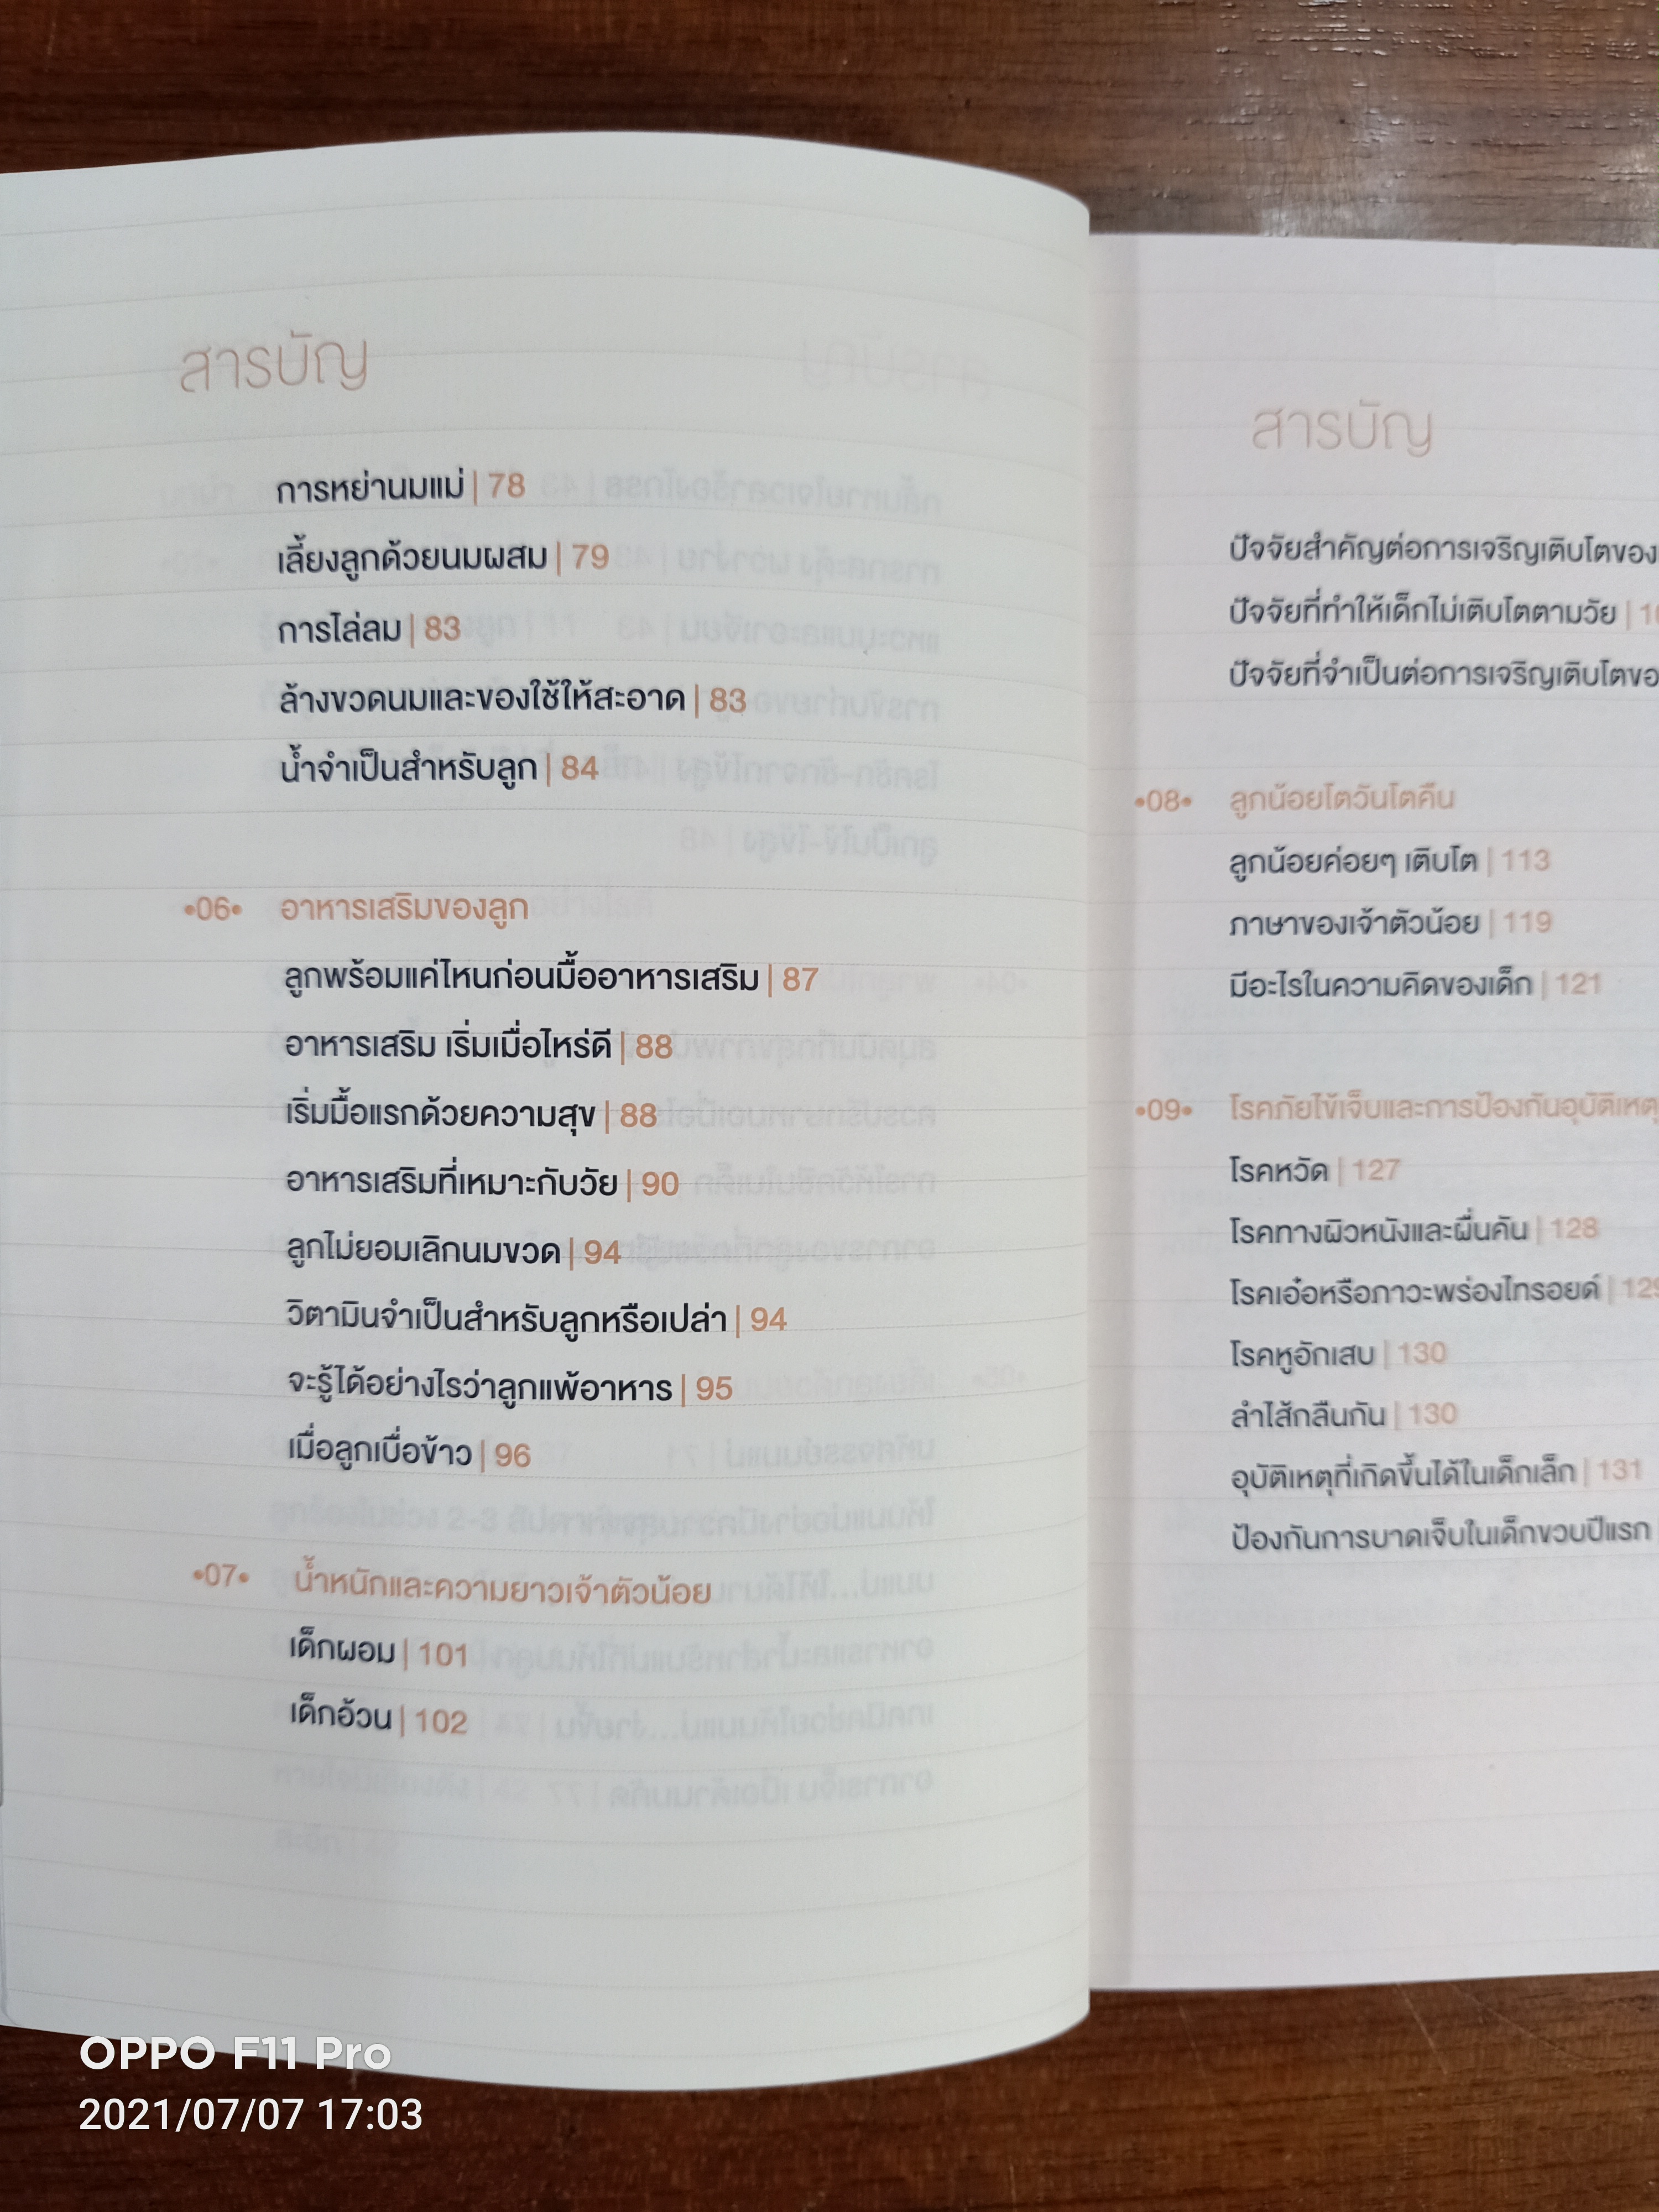 สารบัญ
การหย่านมแม่ | 78
เลี้ยงลูกด้วยนมผสม | 79
การไล่ลม | 83
ล้างขวดนมและของใช้ให้สะอาด | 83
น้ำจำเป็นสำหรับลูก | 84
•06• อาหารเสริมของลูก
ลูกพร้อมแค่ไหนก่อนมื้ออาหารเสริม | 87
อาหารเสริม เริ่มเมื่อไหร่ดี | 88
เริ่มมื้อแรกด้วยความสุข | 88
อาหารเสริมที่เหมาะกับวัย | 90
ลูกไม่ยอมเลิกนมขวด | 94
วิตามินจำเป็นสำหรับลูกหรือเปล่า | 94
จะรู้ได้อย่างไรว่าลูกแพ้อาหาร | 95
เมื่อลูกเบื่อข้าว | 96
•07• น้ำหนักและความยาวเจ้าตัวน้อย
เด็กผอม | 101
เด็กอ้วน | 102
สารบัญ
ปัจจัยสำคัญต่อการเจริญเติบโตของ
ปัจจัยที่ทำให้เด็กไม่เติบโตตามวัย |
ปัจจัยที่จำเป็นต่อการเจริญเติบโตขอ
•08• ลูกน้อยโตวันโตคืน
ลูกน้อยค่อยๆ เติบโต | 113
ภาษาของเจ้าตัวน้อย | 119
มีอะไรในความคิดของเด็ก | 121
•09• โรคภัยไข้เจ็บและการป้องกันอุบัติเหตุ
โรคหวัด | 127
โรคทางผิวหนังและผื่นคัน | 128
โรคเอ๋อหรือภาวะพร่องไทรอยด์ | 129
โรคหูอักเสบ | 130
ลำไส้กลืนกัน | 130
อุบัติเหตุที่เกิดขึ้นได้ในเด็กเล็ก | 131
ป้องกันการบาดเจ็บในเด็กขวบปีแรก
OPPO F11 Pro
2021/07/07 17:03